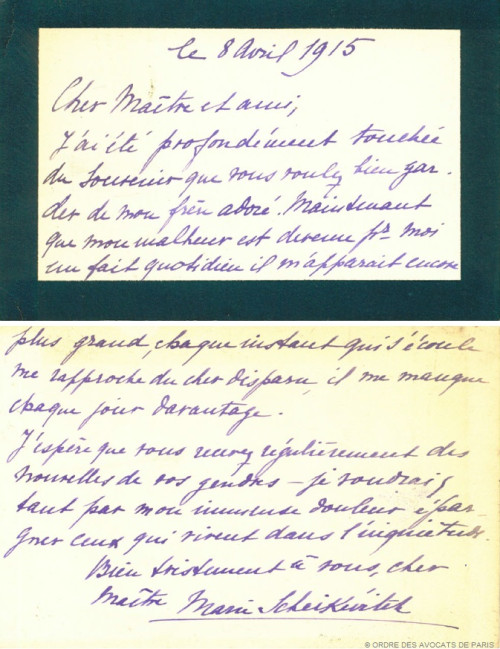 le 8 Avril 1915
Cher Maître et ami,
J'ai été profondément touchée
du souvenir que vous voulez bien gar-
der de mon frère adoré. Maintenant
que mon malheur est devenu pr. moi
un fait quotidien il m'apparait encore
plus grand, chaque instant qui s'écoule
me rapproche du cher disparu, il me manque
chaque jour davantage.
J'espère que vous recevez régulièrement des
nouvelles de vos gendres – je voudrais
tant par mon immense douleur épar-
gner ceux qui vivent dans l'inquiétude.
Bien tristement à vous, cher
Maître Marie Scheikévitch
© ORDRE DES AVOCATS DE PARIS